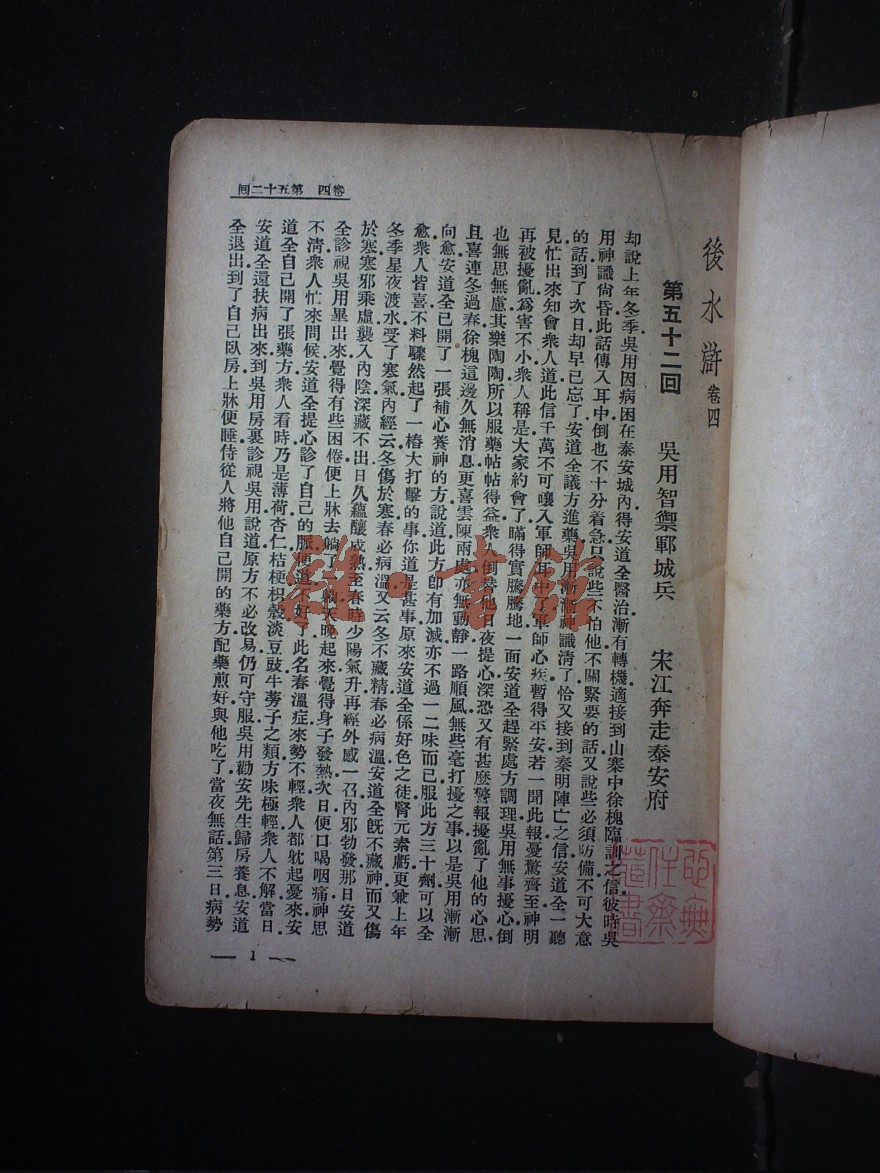 後水滸 卷四
第五十二回 吳用智禦鄆城兵 宋江奔走泰安府
却說上年冬季吳用因病困在泰安城內得安道全醫治漸有轉機適接到山寨中徐槐臨訓之信彼時吳
用神識尙昏此話傳入耳中倒也不十分着急只說些不怕他不關緊要的話又說些必須防備不可大意
的話到了次日却早已忘了安道全議方進藥吳用漸漸神識清了恰又接到秦明陣亡之信安道全一聽
見忙出來知會衆人道此信千萬不可嚷入軍師耳中了軍師心疾暫得平安若一聞此報憂驚齊至神明
再被擾亂爲害不小衆人稱是大家約會了瞞得實騰騰地一面安道全趕緊處方調理吳用無事擾心倒
也無思無慮其樂陶陶所以服藥帖帖得益衆人倒替他日夜提心深恐又有甚麽警報擾亂了他的心思
且喜連冬過春徐槐這邊久無消息更喜雲陳兩處亦無動靜一路順風無些毫打擾之事以是吳用漸漸
向愈安道全已開了一張補心養神的方說道此方卽有加減亦不過一二味而已服此方三十劑可以全
愈衆人皆喜不料驟然起了一樁大打擊的事你道是甚事原來安道全係好色之徒腎元素虧更兼上年
冬季星夜渡水受了寒氣內經云冬傷於寒春必病溫又云冬不藏精春必病溫安道全旣不藏神而又傷
於寒寒邪乘虛襲入內陰深藏不出日久蘊釀成熟至春時少陽氣升再經外感一召內邪勃發那日安道
全診視吳用畢出來覺得有些困倦便上牀去躺了一躺天晚起來覺得身子發熱次日便口喝咽痛神思
不清衆人忙來問候安道全提心診了自己的脈便道不好了此名春溫症來勢不輕衆人都躭起憂來安
道全自己開了張藥方衆人看時乃是薄荷杏仁桔梗枳殼淡豆豉牛蒡子之類方味極輕衆人不解當日
安道全還扶病出來到吳用房裏診視吳用說道原方不必改易仍可守服吳用勸安先生歸房養息安道
全退出到了自己臥房上牀便睡侍從人將他自己開的藥方配藥煎好與他吃了當夜無話第三日病勢
卷四 第五十二回
1